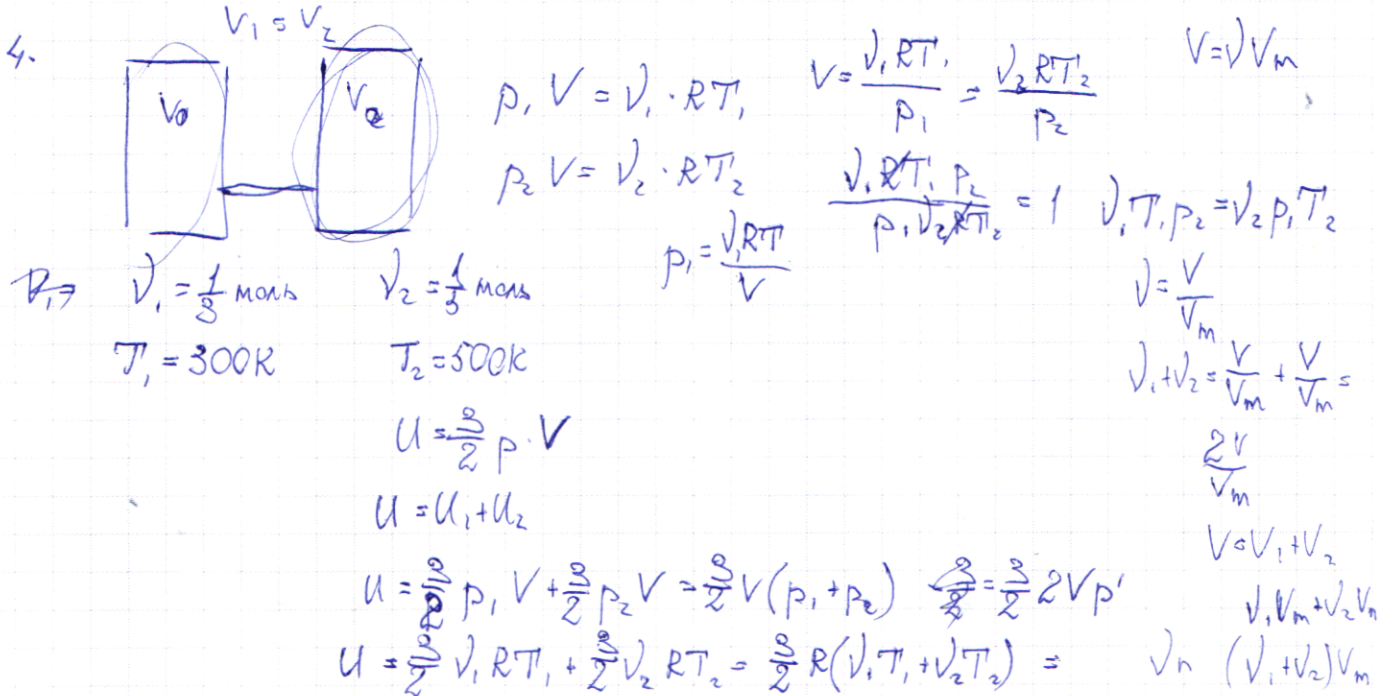 4.
V₁ = V₂
V₀
V₂
p₁ V = ν₁ · RT₁
p₂ V = ν₂ · RT₂
p₁ = ν₁RT / V
V = ν₁RT₁ / p₁ = ν₂RT₂ / p₂
V = νVm
ν₁RT₁ p₂ / p₁ν₂RT₂ = 1
ν₁T₁p₂ = ν₂p₁T₂
ν = V / Vm
ν₁ + ν₂ = V / Vm + V / Vm =
2V / Vm
V = V₁ + V₂
ν₁Vm + ν₂Vm
(ν₁ + ν₂)Vm
ν₁ = 1/3 моль
ν₂ = 1/5 моль
T₁ = 300K
T₂ = 500K
U = 3/2 p · V
U = U₁ + U₂
U = 3/2 p₁ V + 3/2 p₂ V = 3/2 V(p₁ + p₂) = 3/2 2Vp'
U = 3/2 ν₁ RT₁ + 3/2 ν₂ RT₂ = 3/2 R(ν₁T₁ + ν₂T₂) =